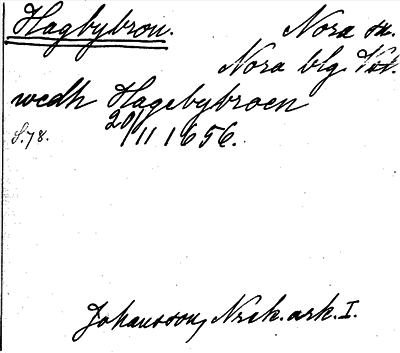 Hagbybron. Nora sn.
Nora blg Vstl.
wedh Hagebybroen
S. 78. 20/11 1656.
Johansson, Nrak. ark. I.